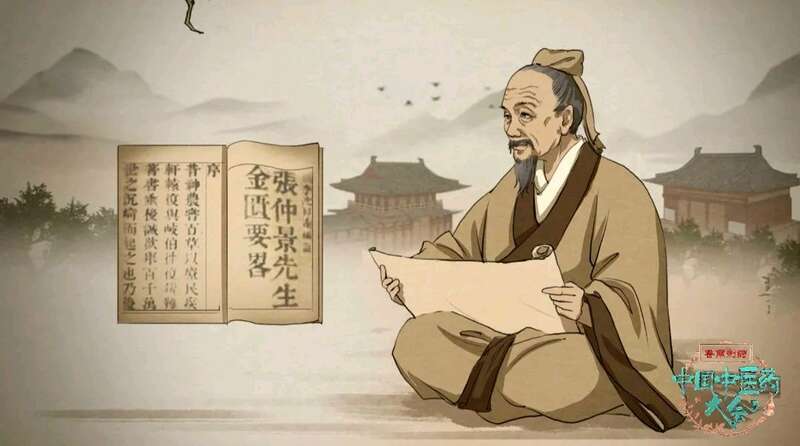 張仲景先生
金匱要畧
序
昔神農嘗百草以療民疾
軒轅復與岐伯
著書垂後誠欲舉百千萬
世之沉痾而起之也乃後
中国中医药
大会